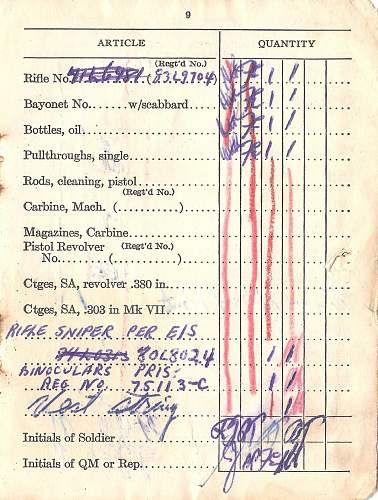 9
ARTICLE QUANTITY
(Regt'd No.)
Rifle No. (53L9704) 1 1
Bayonet No.......w/scabbard 1 1
Bottles, oil 1 1
Pullthroughs, single 1 1
Rods, cleaning, pistol
(Regt'd No.)
Carbine, Mach. (...........)
Magazines, Carbine
Pistol Revolver (Regt'd No.)
No..........(...........)
Ctges, SA, revolver .380 in.
Ctges, SA, .303 in Mk VII.
RIFLE SNIPER PER E/S
80L8024 1 1
BINOCULARS PRIS.
REG NO. 7511.3-C 1 1
Vest String
Initials of Soldier
Initials of QM or Rep.